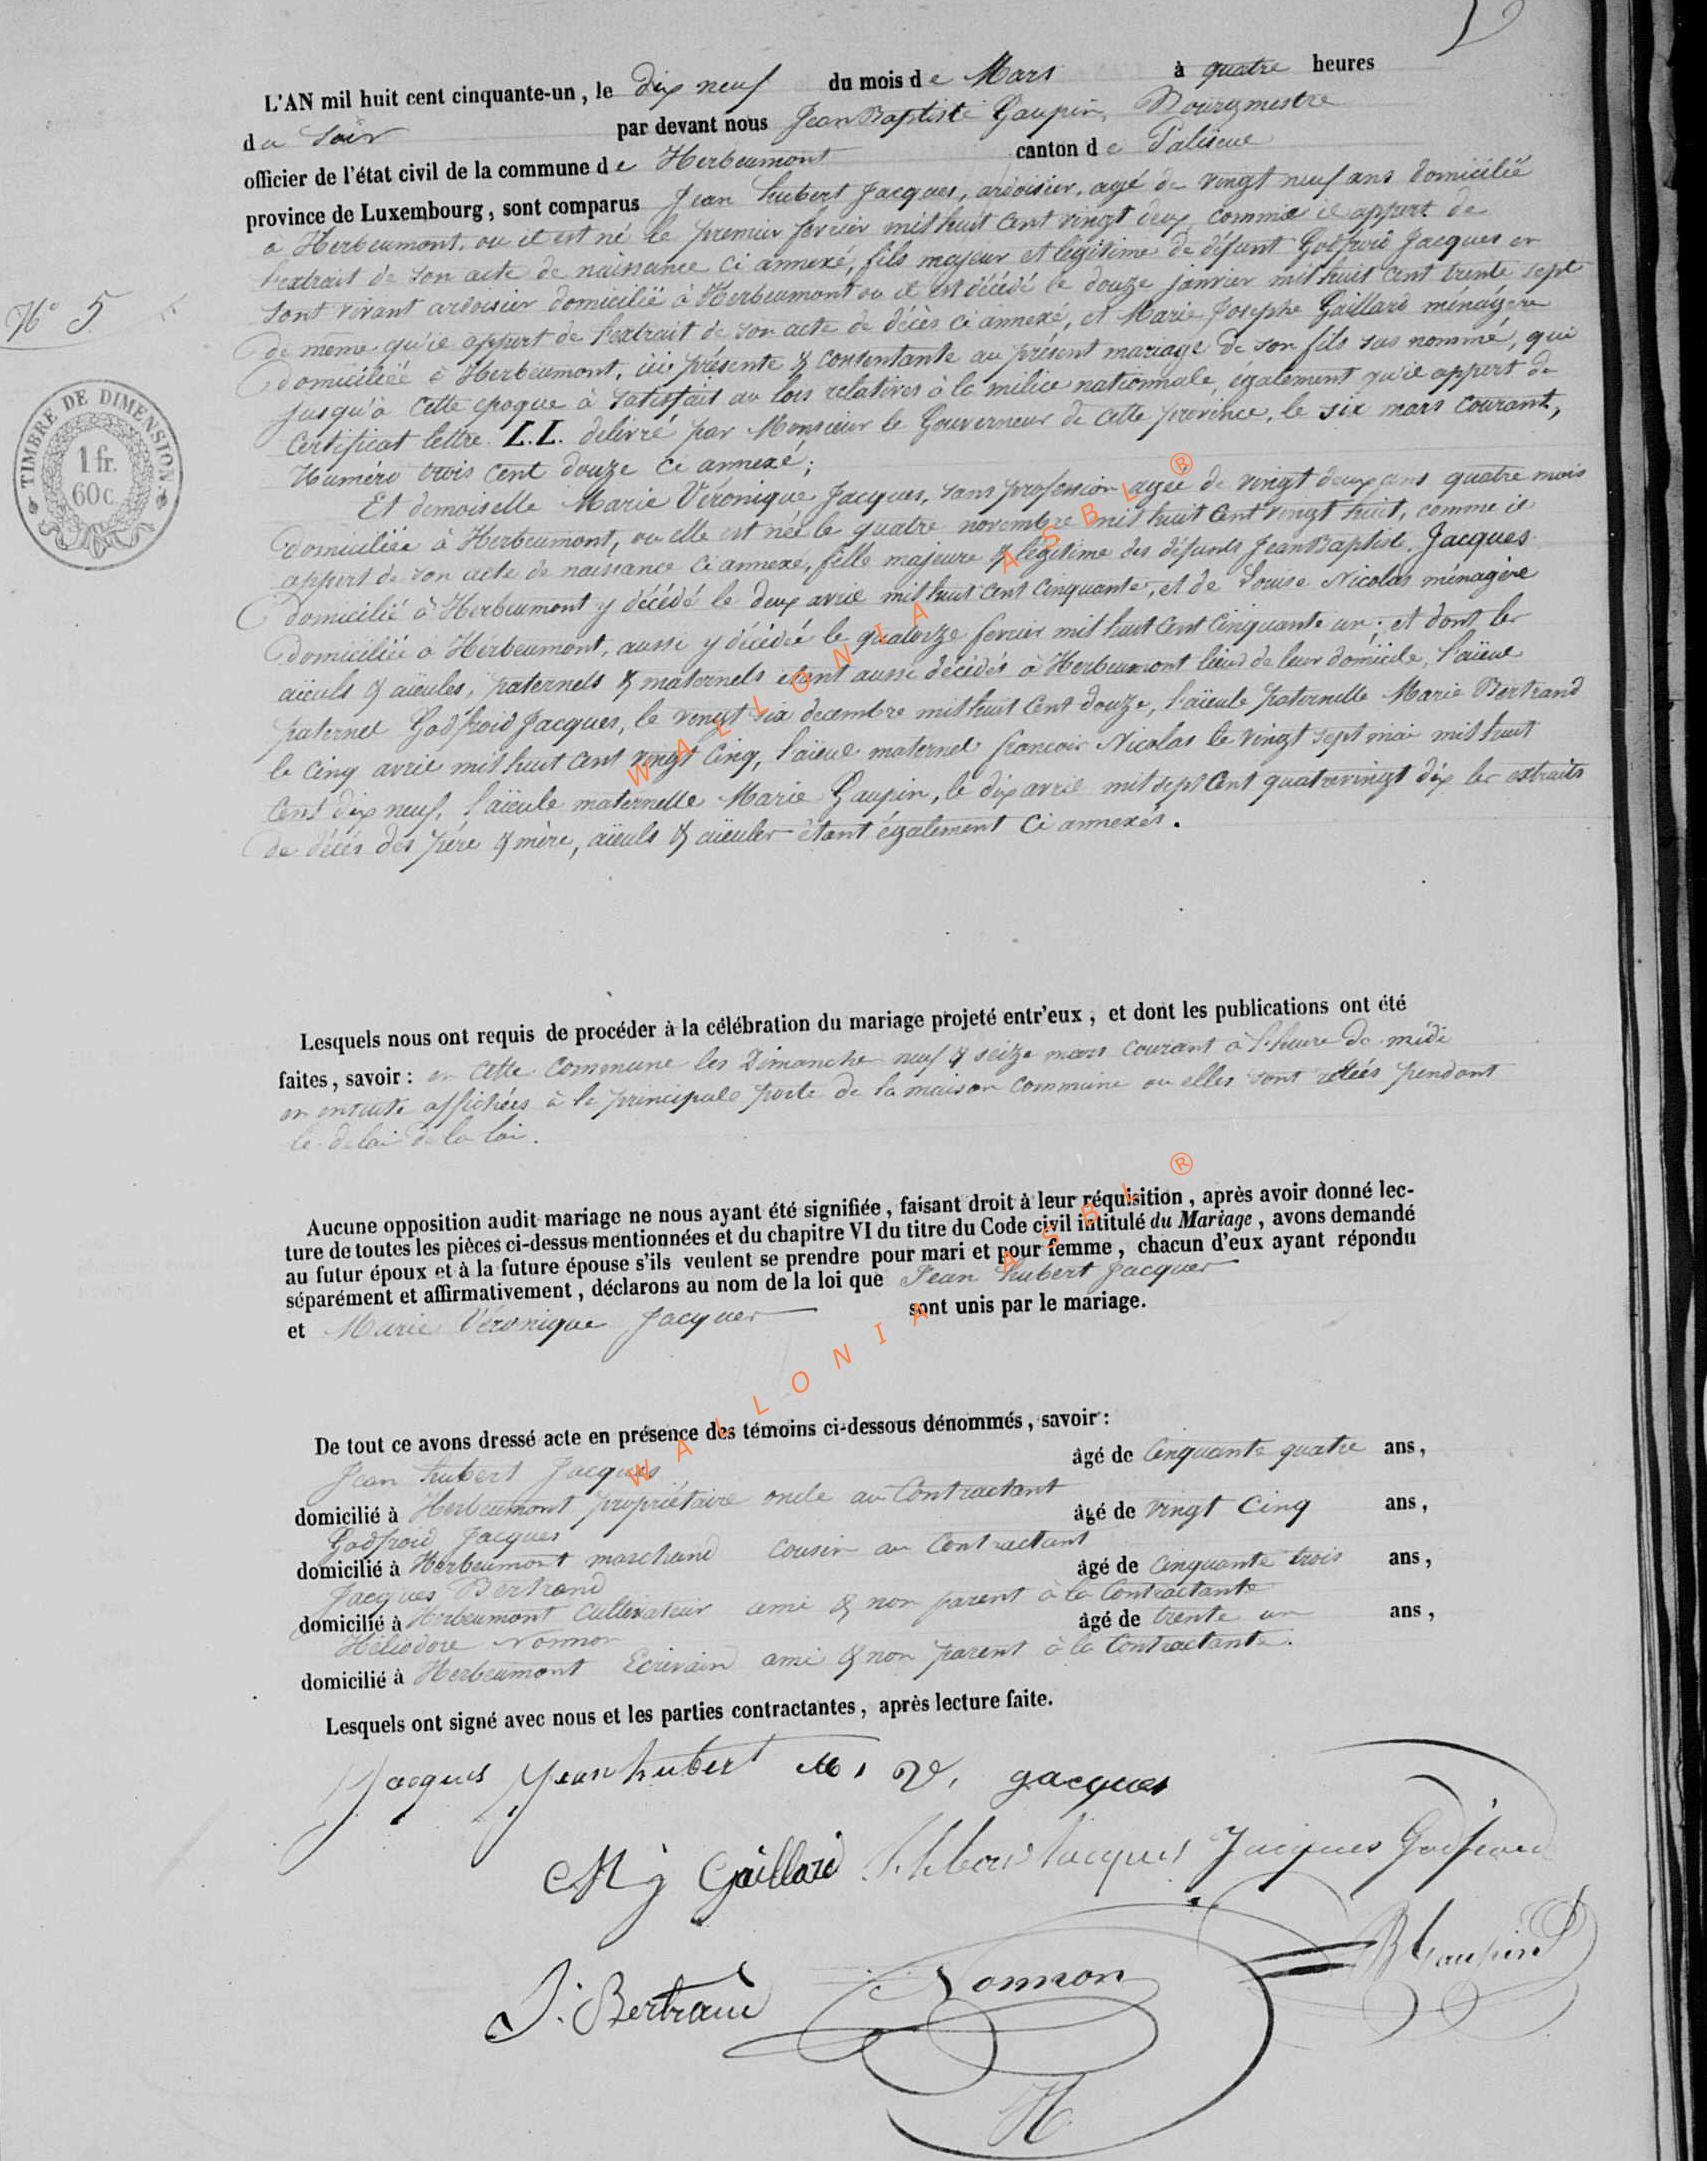 L'AN mil huit cent cinquante-un, le Dix neuf du mois de Mars à quatre heures
du soir par devant nous Jean Baptiste Gaupin, Bourgmestre
officier de l'état civil de la commune de Herbeumont canton de Paliseul
province de Luxembourg, sont comparus Jean hubert Jacques, ardoisier, agé de vingt neuf ans domicilié
a Herbeumont, ou il est né le premier fevrier mil huit cent vingt deux, comme il appert de
l'extrait de son acte de naissance ci annexé, fils majeur et légitime de défunt Godfroid Jacques en
sont vivant ardoisier domicilié à Herbeumont ou il est décédé le douze janvier mil huit cent trente sept
de meme qu'il appert de l'extrait de son acte de décès ci annexé, et Marie Josephe Gaillard ménagère
domiciliée à Herbeumont, ici présente & consentante au présent mariage de son fils sus nommé, qui
jusqu'à cette epoque à satisfait au lois relatives à la milice nationnale, également qu'il appert de
certificat lettre L.L. delivré par Monsieur le Gouverneur de cette province, le six mars courant,
Numéro trois cent douze ci annexé;
Et demoiselle Marie Véronique Jacques, sans profession agée de vingt deux ans quatre mois
domiciliée à Herbeumont, ou elle est née le quatre novembre mil huit cent vingt huit, comme il
appert de son acte de naissance ci annexé, fille majeure & légitime des défunts Jean Baptiste Jacques
domicilié à Herbeumont y décédé le deux avril mil huit cent cinquante, et de Louise Nicolas ménagère
domiciliée à Herbeumont, aussi y décédée le quatorze fevrier mil huit cent cinquante un; et dont les
aïeuls & aïeules, paternels & maternels etant aussi décédés à Herbeumont lieu de leur domicile, l'aïeul
paternel Godfroid Jacques, le vingt six decembre mil huit cent douze, l'aïeule paternelle Marie Bertrand
le cinq avril mil huit cent vingt cinq, l'aïeul maternel francois Nicolas le vingt sept mai mil huit
cent dix neuf, l'aïeule maternelle Marie Gaupin, le dix avril mil sept cent quatrevingt dix les extraits
de décés des père & mère, aïeuls & aïeules étant également ci annexés.
N° 5
TIMBRE DE DIMENSION.
1 fr.
60 c.
Lesquels nous ont requis de procéder à la célébration du mariage projeté entr'eux, et dont les publications ont été
faites, savoir: en cette commune les Dimanche neuf & seize mars courant à l'heure de midi
en ensuite affichées à la principale porte de la maison commune ou elles sont restées pendant
le delai de la loi.
Aucune opposition audit mariage ne nous ayant été signifiée, faisant droit à leur réquisition, après avoir donné lec-
ture de toutes les pièces ci-dessus mentionnées et du chapitre VI du titre du Code civil intitulé du Mariage, avons demandé
au futur époux et à la future épouse s'ils veulent se prendre pour mari et pour femme, chacun d'eux ayant répondu
séparément et affirmativement, déclarons au nom de la loi que Jean hubert Jacques
et Marie Véronique Jacques sont unis par le mariage.
De tout ce avons dressé acte en présence des témoins ci-dessous dénommés, savoir:
Jean hubert Jacques âgé de Cinquante quatre ans,
domicilié à Herbeumont propriétaire oncle au Contractant
Godfroid Jacques âgé de vingt Cinq ans,
domicilié à Herbeumont marchand cousin au Contractant
Jacques Bertrand âgé de Cinquante trois ans,
domicilié à Herbeumont Cultivateur ami & non parent à la Contractante
Héliodore Nonnon âgé de trente un ans,
domicilié à Herbeumont Ecrivain ami & non parent à la Contractante.
Lesquels ont signé avec nous et les parties contractantes, après lecture faite.
Jacques Jean hubert M. V. Jacques
M j Gaillard Jacques Jacques Godfroid
J. Bertrand Nonnon Gaupin
H
WALLONIA ASBL ®
WALLONIA ASBL ®